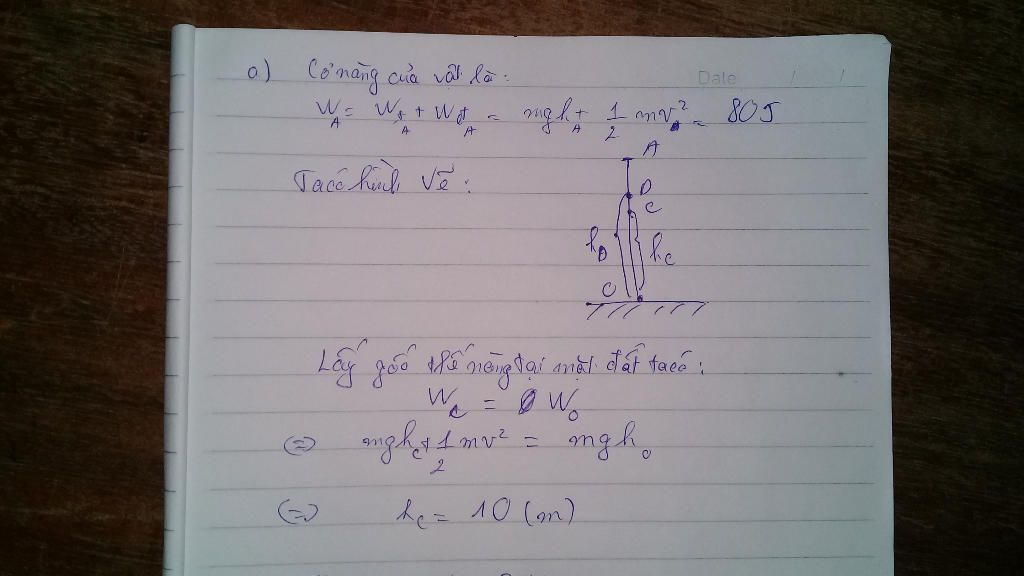 a) Cơ năng của vật là:
Date / /
W_A = W_tA + W_đA = mgh_A + 1/2 mv_0^2 = 80J
A
Ta có hình vẽ:
D
C
h_D
h_C
O
Lấy gốc thế năng tại mặt đất ta có:
W_C = W_0
<=> mgh_C + 1/2 mv^2 = mgh_0
<=> h_C = 10 (m)